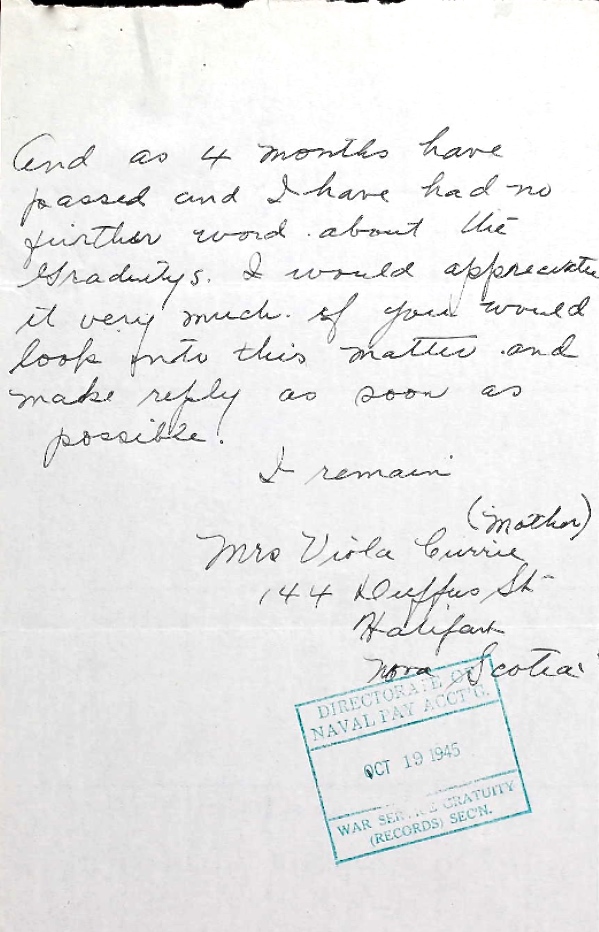 And as 4 months have
passed and I have had no
further word about the
Gradutys. I would appreciate
it very much. if you would
look into this matter and
make reply as soon as
possible.
I remain
(Mother)
Mrs Viola Currie
144 Duffus St
Halifax
Nova Scotia
DIRECTORATE OF
NAVAL PAY ACCT'G.
OCT 19 1945
WAR SERVICE GRATUITY
(RECORDS) SEC'N.